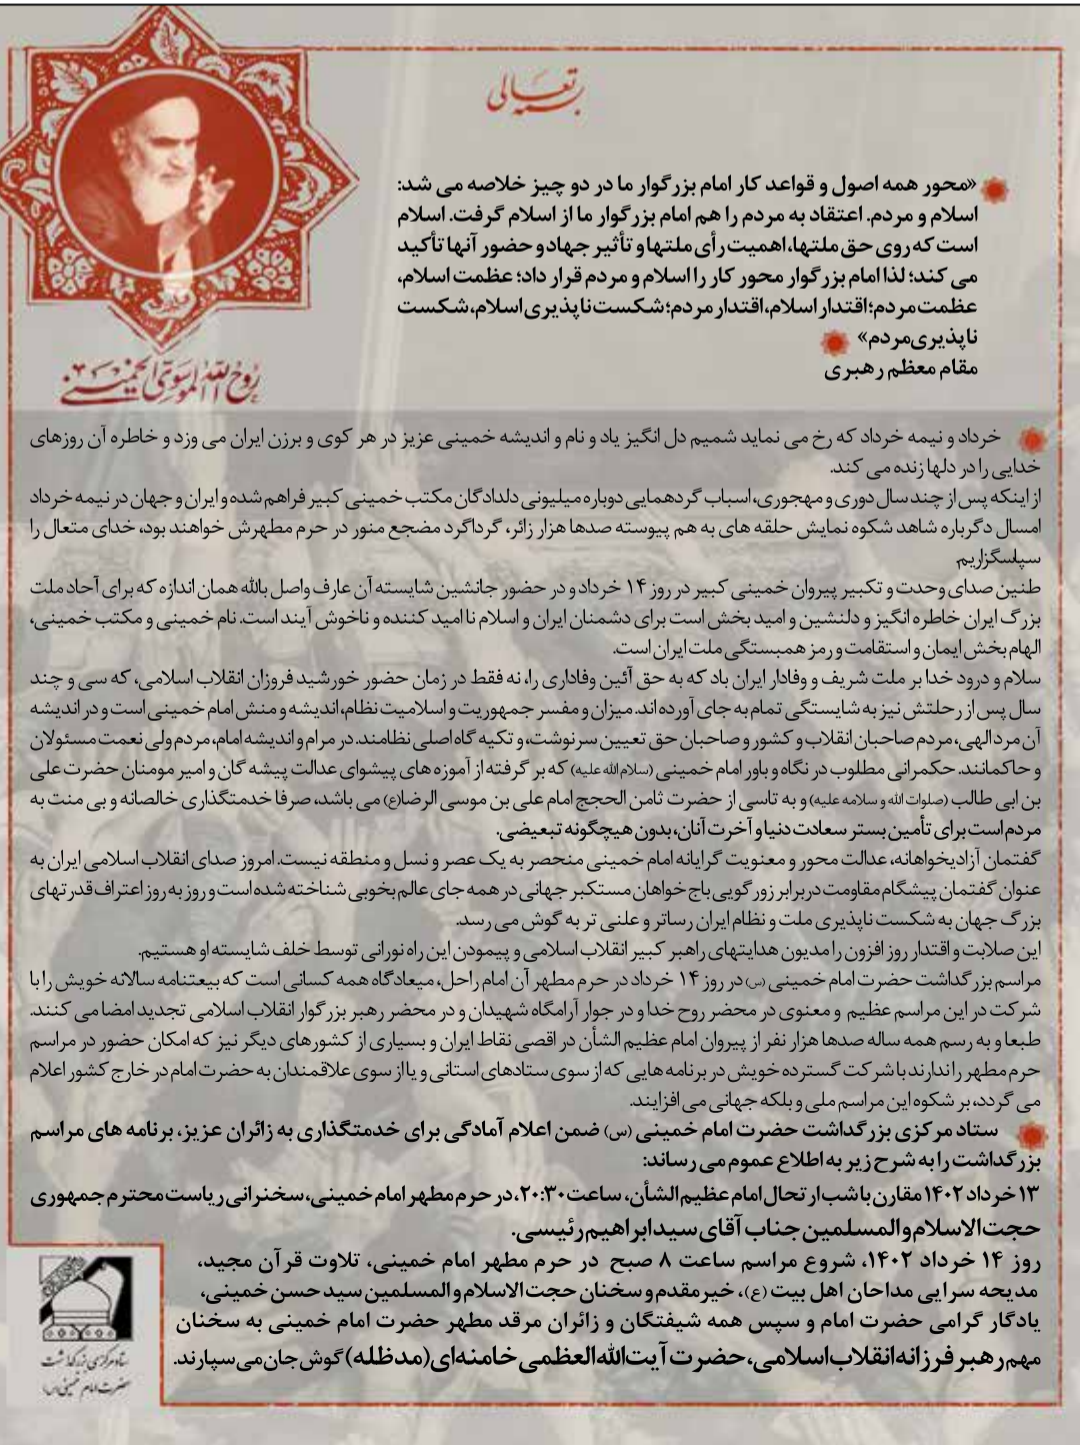 بسمه تعالی
«محور همه اصول و قواعد کار امام بزرگوار ما در دو چیز خلاصه می شد:
اسلام و مردم. اعتقاد به مردم را هم امام بزرگوار ما از اسلام گرفت. اسلام
است که روی حق ملتها، اهمیت رأی ملتها و تأثیر جهاد و حضور آنها تأکید
می کند؛ لذا امام بزرگوار محور کار را اسلام و مردم قرار داد؛ عظمت اسلام،
عظمت مردم؛ اقتدار اسلام، اقتدار مردم؛ شکست ناپذیری اسلام، شکست
ناپذیری مردم»
مقام معظم رهبری
روح الله الموسوی الخمینی
خرداد و نیمه خرداد که رخ می نماید شمیم دل انگیز یاد و نام و اندیشه خمینی عزیز در هر کوی و برزن ایران می وزد و خاطره آن روزهای
خدایی را در دلها زنده می کند.
از اینکه پس از چند سال دوری و مهجوری، اسباب گردهمایی دوباره میلیونی دلدادگان مکتب خمینی کبیر فراهم شده و ایران و جهان در نیمه خرداد
امسال دگرباره شاهد شکوه نمایش حلقه های به هم پیوسته صدها هزار زائر، گرداگرد مضجع منور در حرم مطهرش خواهند بود، خدای متعال را
سپاسگزاریم.
طنین صدای وحدت و تکبیر پیروان خمینی کبیر در روز ۱۴ خرداد و در حضور جانشین شایسته آن عارف واصل بالله همان اندازه که برای آحاد ملت
بزرگ ایران خاطره انگیز و دلنشین و امید بخش است برای دشمنان ایران و اسلام ناامید کننده و ناخوش آیند است. نام خمینی و مکتب خمینی،
الهام بخش ایمان و استقامت و رمز همبستگی ملت ایران است.
سلام و درود خدا بر ملت شریف و وفادار ایران باد که به حق آئین وفاداری را، نه فقط در زمان حضور خورشید فروزان انقلاب اسلامی، که سی و چند
سال پس از رحلتش نیز به شایستگی تمام به جای آورده اند. میزان و مفسر جمهوریت و اسلامیت نظام، اندیشه و منش امام خمینی است و در اندیشه
آن مرد الهی، مردم صاحبان انقلاب و کشور و صاحبان حق تعیین سرنوشت، و تکیه گاه اصلی نظامند. در مرام و اندیشه امام، مردم ولی نعمت مسئولان
و حاکمانند. حکمرانی مطلوب در نگاه و باور امام خمینی (سلام الله علیه) که بر گرفته از آموزه های پیشوای عدالت پیشه گان و امیر مومنان حضرت علی
بن ابی طالب (صلوات الله و سلامه علیه) و به تاسی از حضرت ثامن الحجج امام علی بن موسی الرضا(ع) می باشد، صرفا خدمتگذاری خالصانه و بی منت به
مردم است برای تأمین بستر سعادت دنیا و آخرت آنان، بدون هیچگونه تبعیضی.
گفتمان آزادیخواهانه، عدالت محور و معنویت گرایانه امام خمینی منحصر به یک عصر و نسل و منطقه نیست. امروز صدای انقلاب اسلامی ایران به
عنوان گفتمان پیشگام مقاومت در برابر زور گویی باج خواهان مستکبر جهانی در همه جای عالم بخوبی شناخته شده است و روز به روز اعتراف قدرتهای
بزرگ جهان به شکست ناپذیری ملت و نظام ایران رساتر و علنی تر به گوش می رسد.
این صلابت و اقتدار روز افزون را مدیون هدایتهای راهبر کبیر انقلاب اسلامی و پیمودن این راه نورانی توسط خلف شایسته او هستیم.
مراسم بزرگداشت حضرت امام خمینی (س) در روز ۱۴ خرداد در حرم مطهر آن امام راحل، میعادگاه همه کسانی است که بیعتنامه سالانه خویش را با
شرکت در این مراسم عظیم و معنوی در محضر روح خدا و در جوار آرامگاه شهیدان و در محضر رهبر بزرگوار انقلاب اسلامی تجدید امضا می کنند.
طبعا و به رسم همه ساله صدها هزار نفر از پیروان امام عظیم الشأن در اقصی نقاط ایران و بسیاری از کشورهای دیگر نیز که امکان حضور در مراسم
حرم مطهر را ندارند با شرکت گسترده خویش در برنامه هایی که از سوی ستادهای استانی و یا از سوی علاقمندان به حضرت امام در خارج کشور اعلام
می گردد، بر شکوه این مراسم ملی و بلکه جهانی می افزایند.
ستاد مرکزی بزرگداشت حضرت امام خمینی (س) ضمن اعلام آمادگی برای خدمتگذاری به زائران عزیز، برنامه های مراسم
بزرگداشت را به شرح زیر به اطلاع عموم می رساند:
۱۳ خرداد ۱۴۰۲ مقارن با شب ارتحال امام عظیم الشأن، ساعت ۲۰:۳۰، در حرم مطهر امام خمینی، سخنرانی ریاست محترم جمهوری
حجت الاسلام والمسلمین جناب آقای سید ابراهیم رئیسی.
روز ۱۴ خرداد ۱۴۰۲، شروع مراسم ساعت ۸ صبح در حرم مطهر امام خمینی، تلاوت قرآن مجید،
مدیحه سرایی مداحان اهل بیت (ع)، خیرمقدم و سخنان حجت الاسلام والمسلمین سید حسن خمینی،
یادگار گرامی حضرت امام و سپس همه شیفتگان و زائران مرقد مطهر حضرت امام خمینی به سخنان
مهم رهبر فرزانه انقلاب اسلامی، حضرت آیت الله العظمی خامنه ای (مدظله) گوش جان می سپارند.
ستاد مرکزی بزرگداشت
حضرت امام خمینی (س)